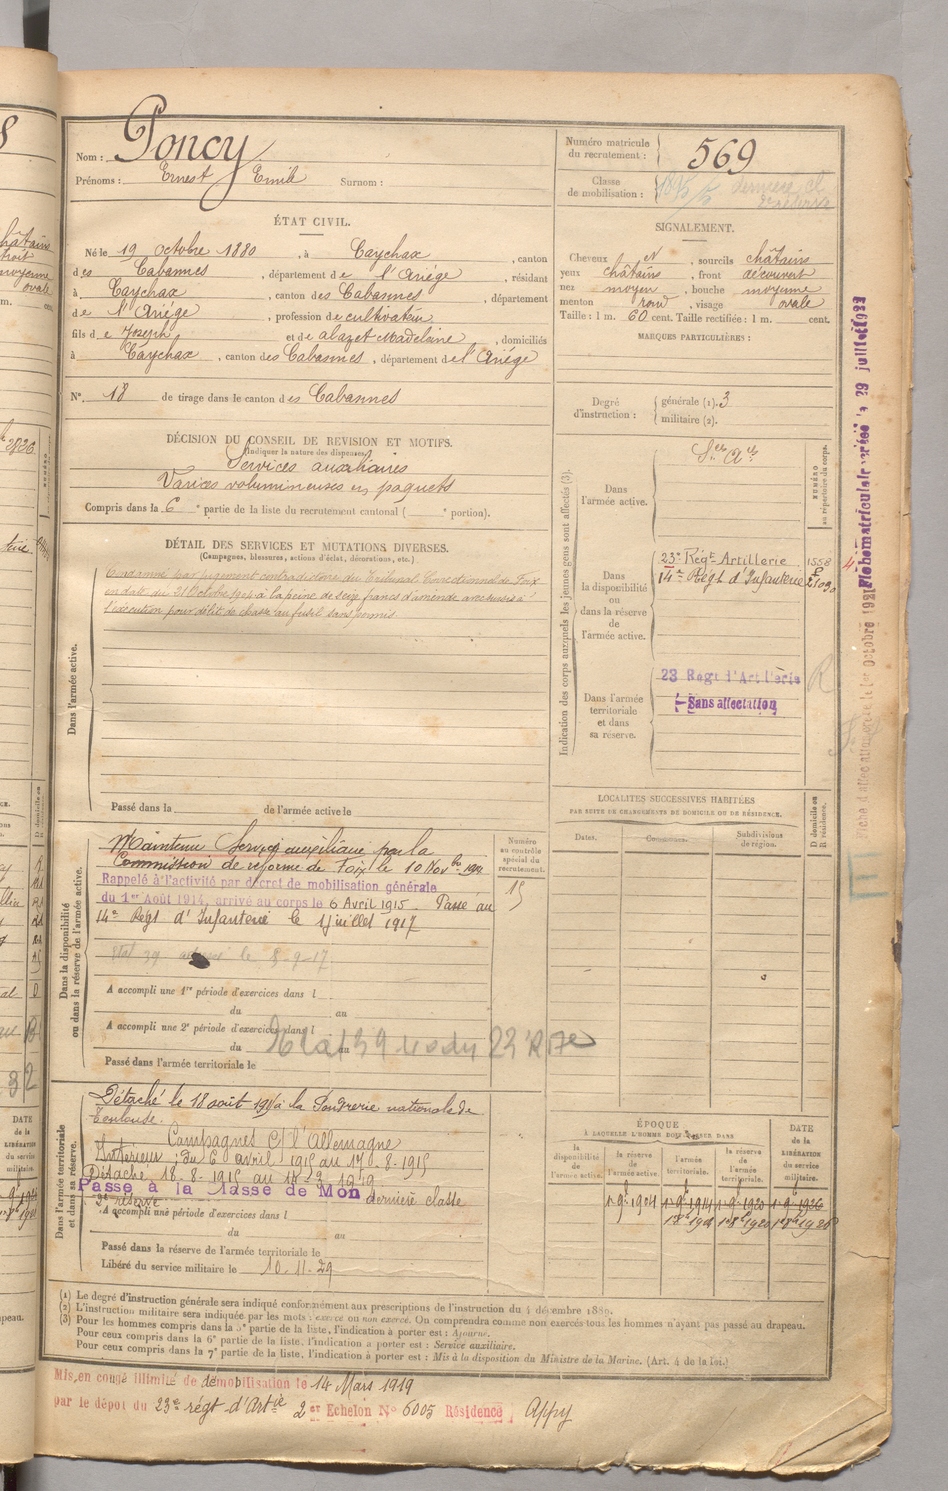 Nom : Poncy
Prénoms : Ernest Emile Surnom :
Numéro matricule du recrutement : 569
Classe de mobilisation : dernière cl 2e réserve
ÉTAT CIVIL.
Né le 19 octobre 1880, à Caychax, canton
des Cabannes, département de l'Ariége, résidant
à Caychax, canton des Cabannes, département
de l'Ariége, profession de cultivateur
fils de Joseph et de alazet Madeleine, domiciliés
à Caychax, canton des Cabannes, département de l'Ariége
N° 18 de tirage dans le canton des Cabannes
SIGNALEMENT.
Cheveux N, sourcils châtains
yeux châtains, front découvert
nez moyen, bouche moyenne
menton rond, visage ovale
Taille : 1 m. 60 cent. Taille rectifiée : 1 m. cent.
MARQUES PARTICULIÈRES :
Degré d'instruction : générale (1). 3
militaire (2).
DÉCISION DU CONSEIL DE REVISION ET MOTIFS.
(Indiquer la nature des dispenses)
Services auxiliaires
Varices volumineuses en paquets
Compris dans la 6e partie de la liste du recrutement cantonal ( e portion).
DÉTAIL DES SERVICES ET MUTATIONS DIVERSES.
(Campagnes, blessures, actions d'éclat, décorations, etc.)
Dans l'armée active.
Condamné par jugement contradictoire du Tribunal Correctionnel de Foix
en date du 21 Octobre 1904 à la peine de seize francs d'amende avec sursis à
l'exécution pour délit de chasse au fusil sans permis
Passé dans la de l'armée active le
Indication des corps auxquels les jeunes gens sont affectés (3).
NUMÉRO au répertoire du corps.
Dans l'armée active.
Dans la disponibilité ou dans la réserve de l'armée active.
23e Régt Artillerie 1558
14e Régt d'Infanterie
Dans l'armée territoriale et dans sa réserve.
23 Régt d'Artillerie
Sans affectation
LOCALITÉS SUCCESSIVES HABITÉES
PAR SUITE DE CHANGEMENTS DE DOMICILE OU DE RÉSIDENCE.
Dates. Communes. Subdivisions de région. D domicile ou R résidence.
Dans la disponibilité ou dans la réserve de l'armée active.
Numéro au contrôle spécial du recrutement.
15
Maintenu Service auxiliaire par la
Commission de réforme de Foix le 10 Novbre 1914
Rappelé à l'activité par décret de mobilisation générale
du 1er Août 1914, arrivé au corps le 6 Avril 1915 Passé au
14e Régt d'Infanterie le 1 juillet 1917
Etat 39 le 8-9-17
A accompli une 1re période d'exercices dans l
du au
A accompli une 2e période d'exercices dans l
du au
Etat 39
Passé dans l'armée territoriale le
Dans l'armée territoriale et dans sa réserve.
Détaché le 18 août 1915 à la Poudrerie nationale de
Toulouse.
Campagnes C/ l'Allemagne
Intérieur : du 6 avril 1915 au 17-8-1915
Détaché 18-8-1915 au
Passé à la classe de Mon dernière classe
2e réserve
A accompli une période d'exercices dans l
du au
Passé dans la réserve de l'armée territoriale le
Libéré du service militaire le 10.11.29
ÉPOQUE
À LAQUELLE L'HOMME DOIT PASSER DANS
la disponibilité de l'armée active.
la réserve de l'armée active.
l'armée territoriale.
la réserve de l'armée territoriale.
DATE de la LIBÉRATION du service militaire.
1-9-1904 1-9-1914 1-9-1920 1-9-1926
(1) Le degré d'instruction générale sera indiqué conformément aux prescriptions de l'instruction du 4 décembre 1889.
(2) L'instruction militaire sera indiquée par les mots : exercé ou non exercé. On comprendra comme non exercés tous les hommes n'ayant pas passé au drapeau.
(3) Pour les hommes compris dans la 5e partie de la liste, l'indication à porter est : Ajourné.
Pour ceux compris dans la 6e partie de la liste, l'indication à porter est : Service auxiliaire.
Pour ceux compris dans la 7e partie de la liste, l'indication à porter est : Mis à la disposition du Ministre de la Marine. (Art. 4 de la loi.)
Mis en congé illimité de démobilisation le 14 Mars 1919
par le dépôt du 23e régt d'Artie 2er Echelon N° 6005 Résidence Appy